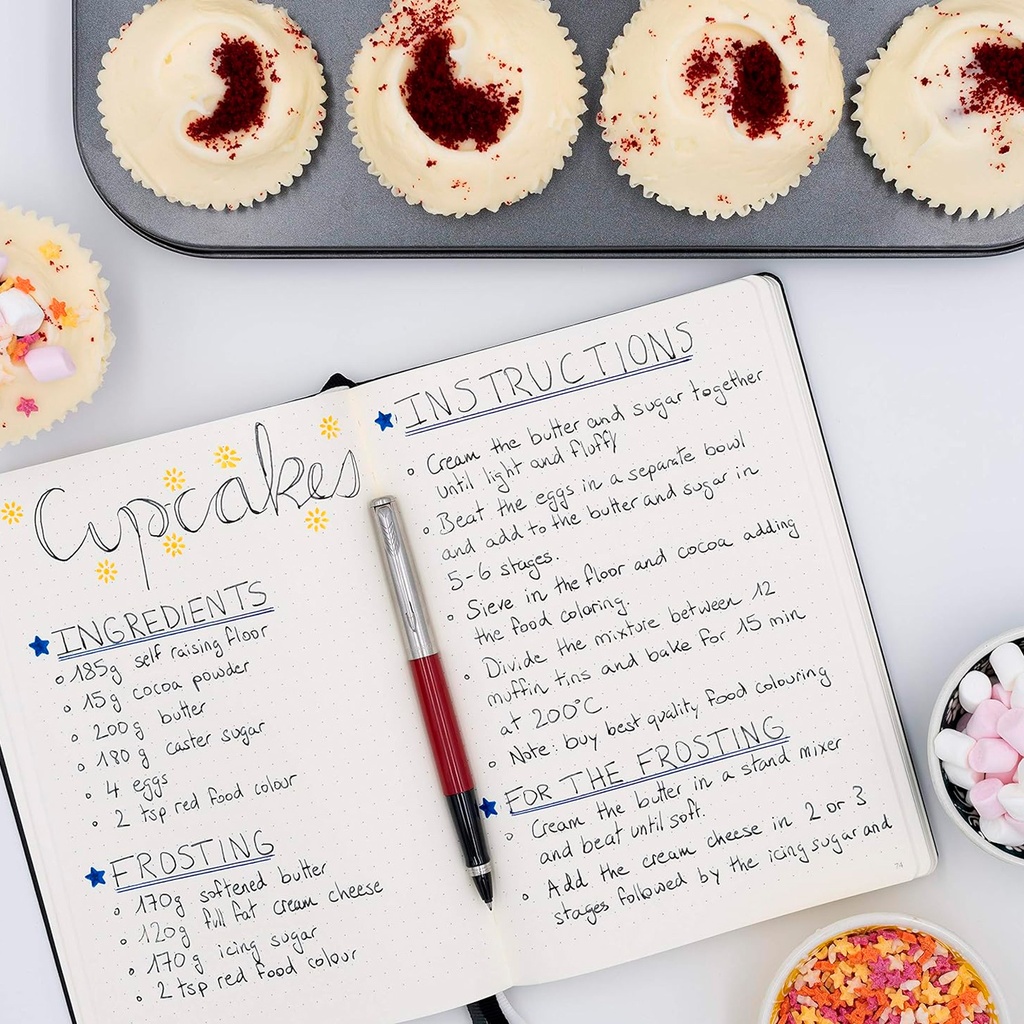 Cupcakes
INGREDIENTS
185g self raising floor
15g cocoa powder
200g butter
180g caster sugar
4 eggs
2 tsp red food colour
FROSTING
170g softened butter
120g full fat cream cheese
170g icing sugar
2 tsp red food colour
INSTRUCTIONS
Cream the butter and sugar together
until light and fluffy
Beat the eggs in a separate bowl
and add to the butter and sugar in
5-6 stages.
Sieve in the floor and cocoa adding
the food coloring.
Divide the mixture between 12
muffin tins and bake for 15 min
at 200°C.
Note: buy best quality food colouring
FOR THE FROSTING
Cream the butter in a stand mixer
and beat until soft.
Add the cream cheese in 2 or 3
stages followed by the icing sugar and